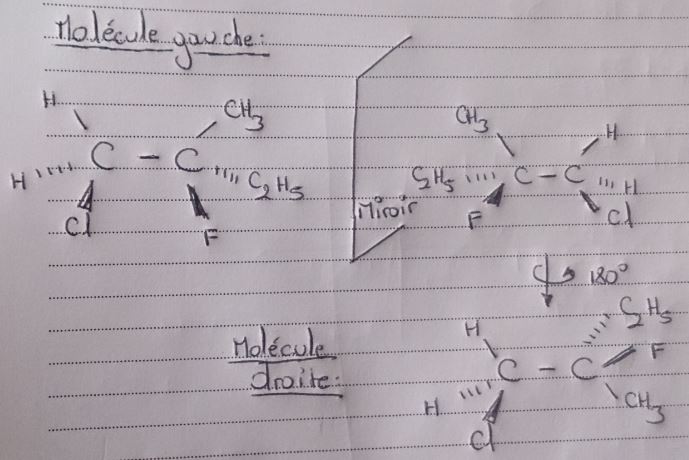 Molécule gauche:
H CH3
H C - C C2H5
Cl F
CH3 H
C2H5 C - C H
F Cl
Miroir
180°
Molécule droite:
H C2H5
C - C F
H CH3
Cl